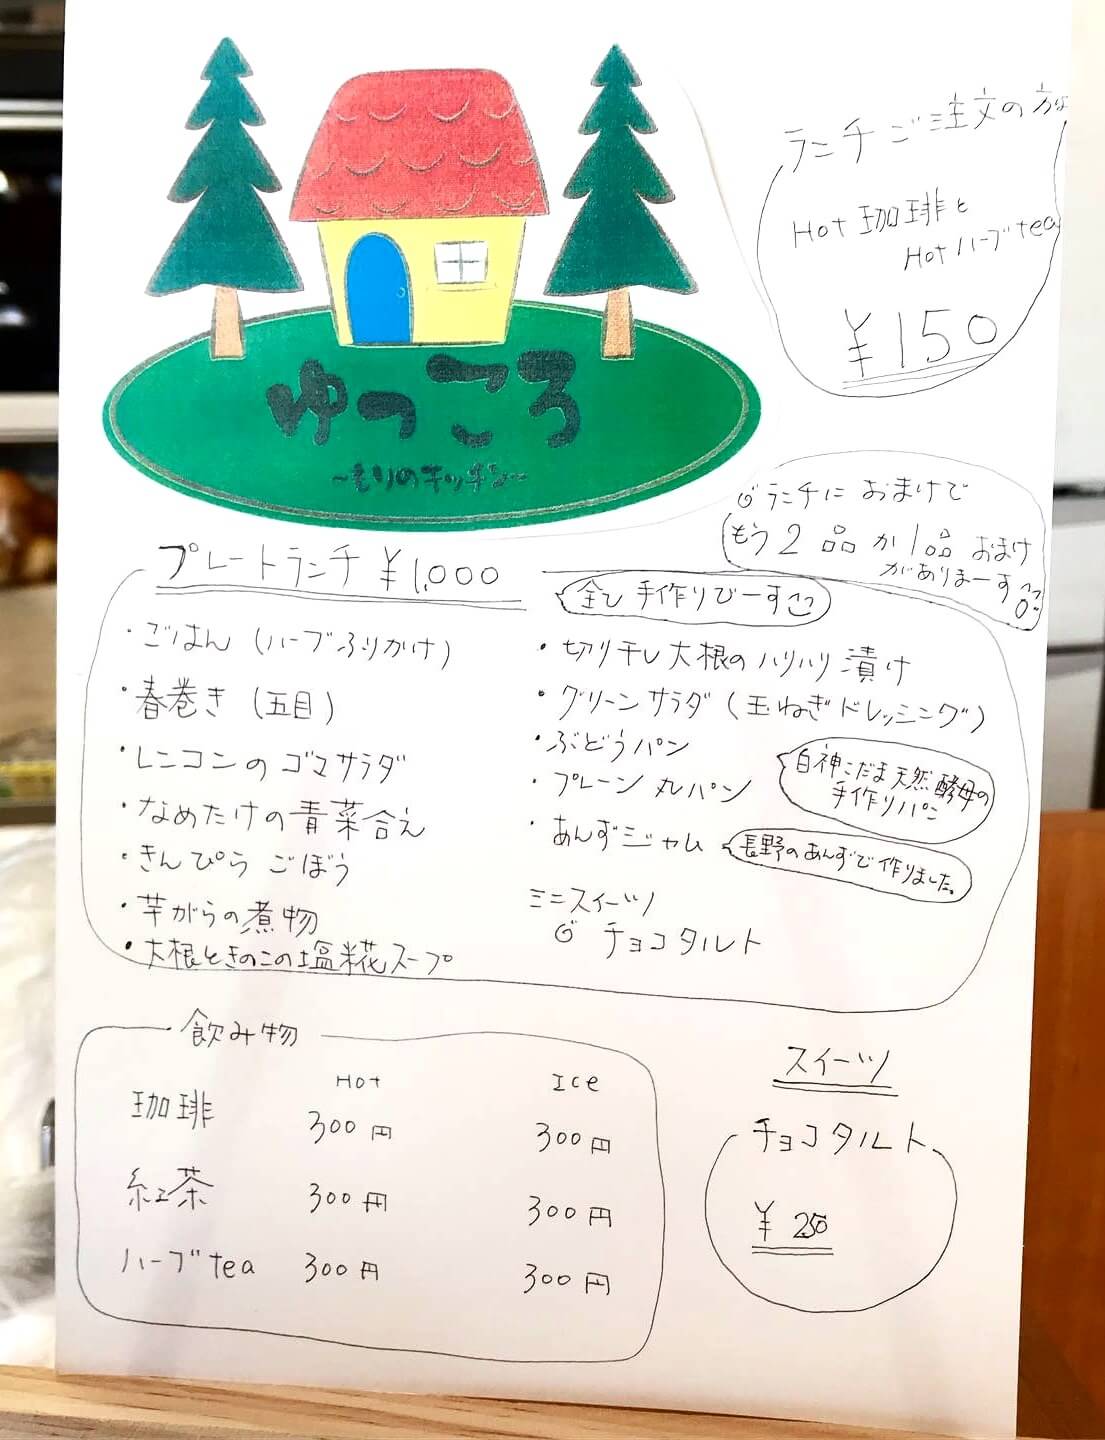 ランチご注文の方は
Hot 珈琲と
Hot ハーブtea
¥150
ゆっころ
~もりのキッチン~
ランチに おまけで
もう2品か1品 おまけ
がありまーす
プレートランチ ¥1,000
全て手作りでーす
・ごはん (ハーブふりかけ)
・春巻き (五目)
・レンコンのゴマサラダ
・なめたけの青菜合え
・きんぴら ごぼう
・芋がらの煮物
・大根ときのこの塩糀スープ
・切り干し大根のハリハリ漬け
・グリーンサラダ (玉ねぎドレッシング)
・ぶどうパン
・プレーン丸パン
白神こだま天然酵母の
手作りパン
・あんずジャム
長野のあんずで作りました。
ミニスイーツ
チョコタルト
飲み物
Hot Ice
珈琲 300円 300円
紅茶 300円 300円
ハーブtea 300円 300円
スイーツ
チョコタルト
¥250